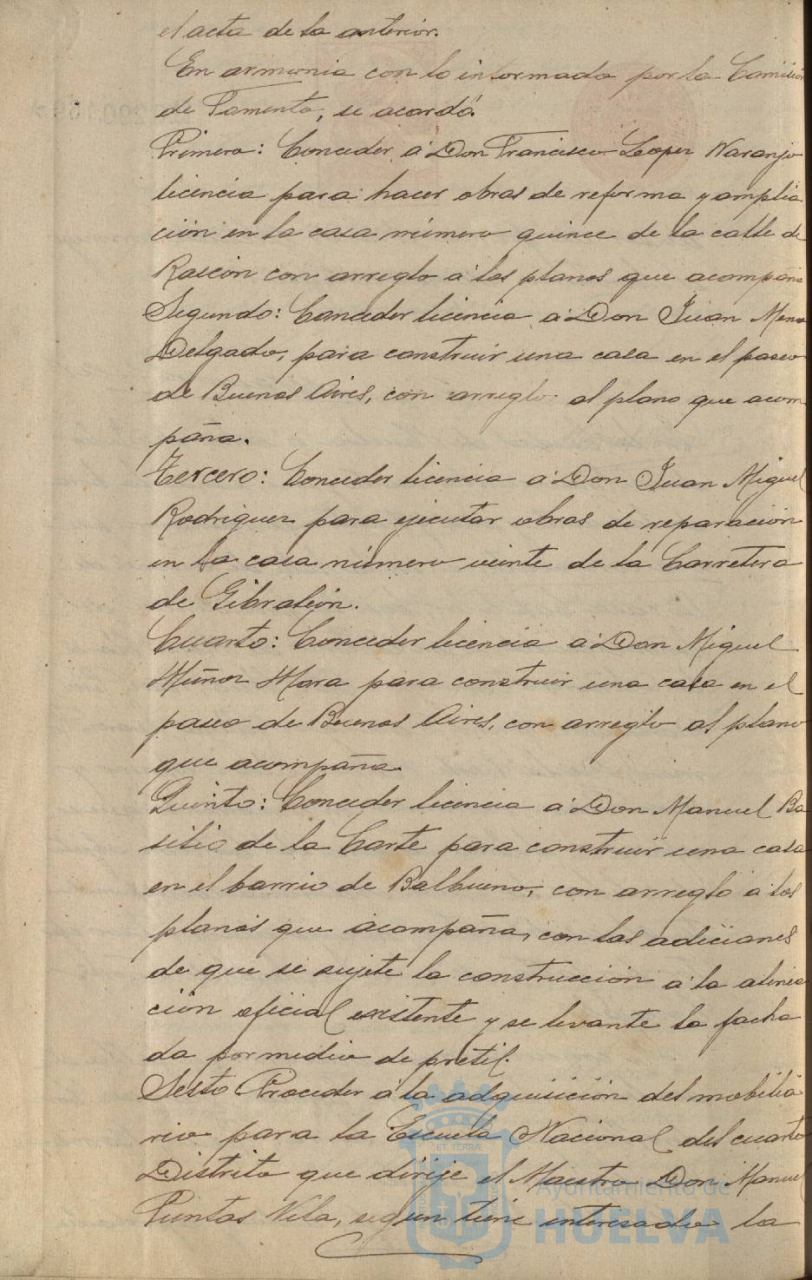 el acta de la anterior.
En armonia con lo informado por la Comisión
de Fomento, se acordó.
Primero: Conceder á Don Francisco Lopez Naranjo
licencia para hacer obras de reforma y amplia
ción en la casa número quince de la calle de
Rascón con arreglo á los planos que acompaña
Segundo: Conceder licencia á Don Juan Mena
Delgado, para construir una casa en el paseo
de Buenos Aires, con arreglo al plano que acom
paña.
Tercero: Conceder licencia á Don Juan Miguel
Rodriguez para ejecutar obras de reparación
en la casa número veinte de la Carretera
de Gibraleón.
Cuarto: Conceder licencia á Don Miguel
Muñoz Mora para construir una casa en el
paseo de Buenos Aires, con arreglo al plano
que acompaña.
Quinto: Conceder licencia á Don Manuel Ba
silio de la Corte para construir una casa
en el barrio de Balbueno, con arreglo á los
planos que acompaña, con las adiciones
de que se sujete la construcción á la alinea
ción oficial existente y se levante la facha
da por medio de pretil.
Sesto Proceder á la adquisición del mobilia
rio para la Escuela Nacional del cuarto
Distrito que dirije el Maestro Don Manuel
Puntas Vela, según tiene interesado la
Ayuntamiento de
HUELVA